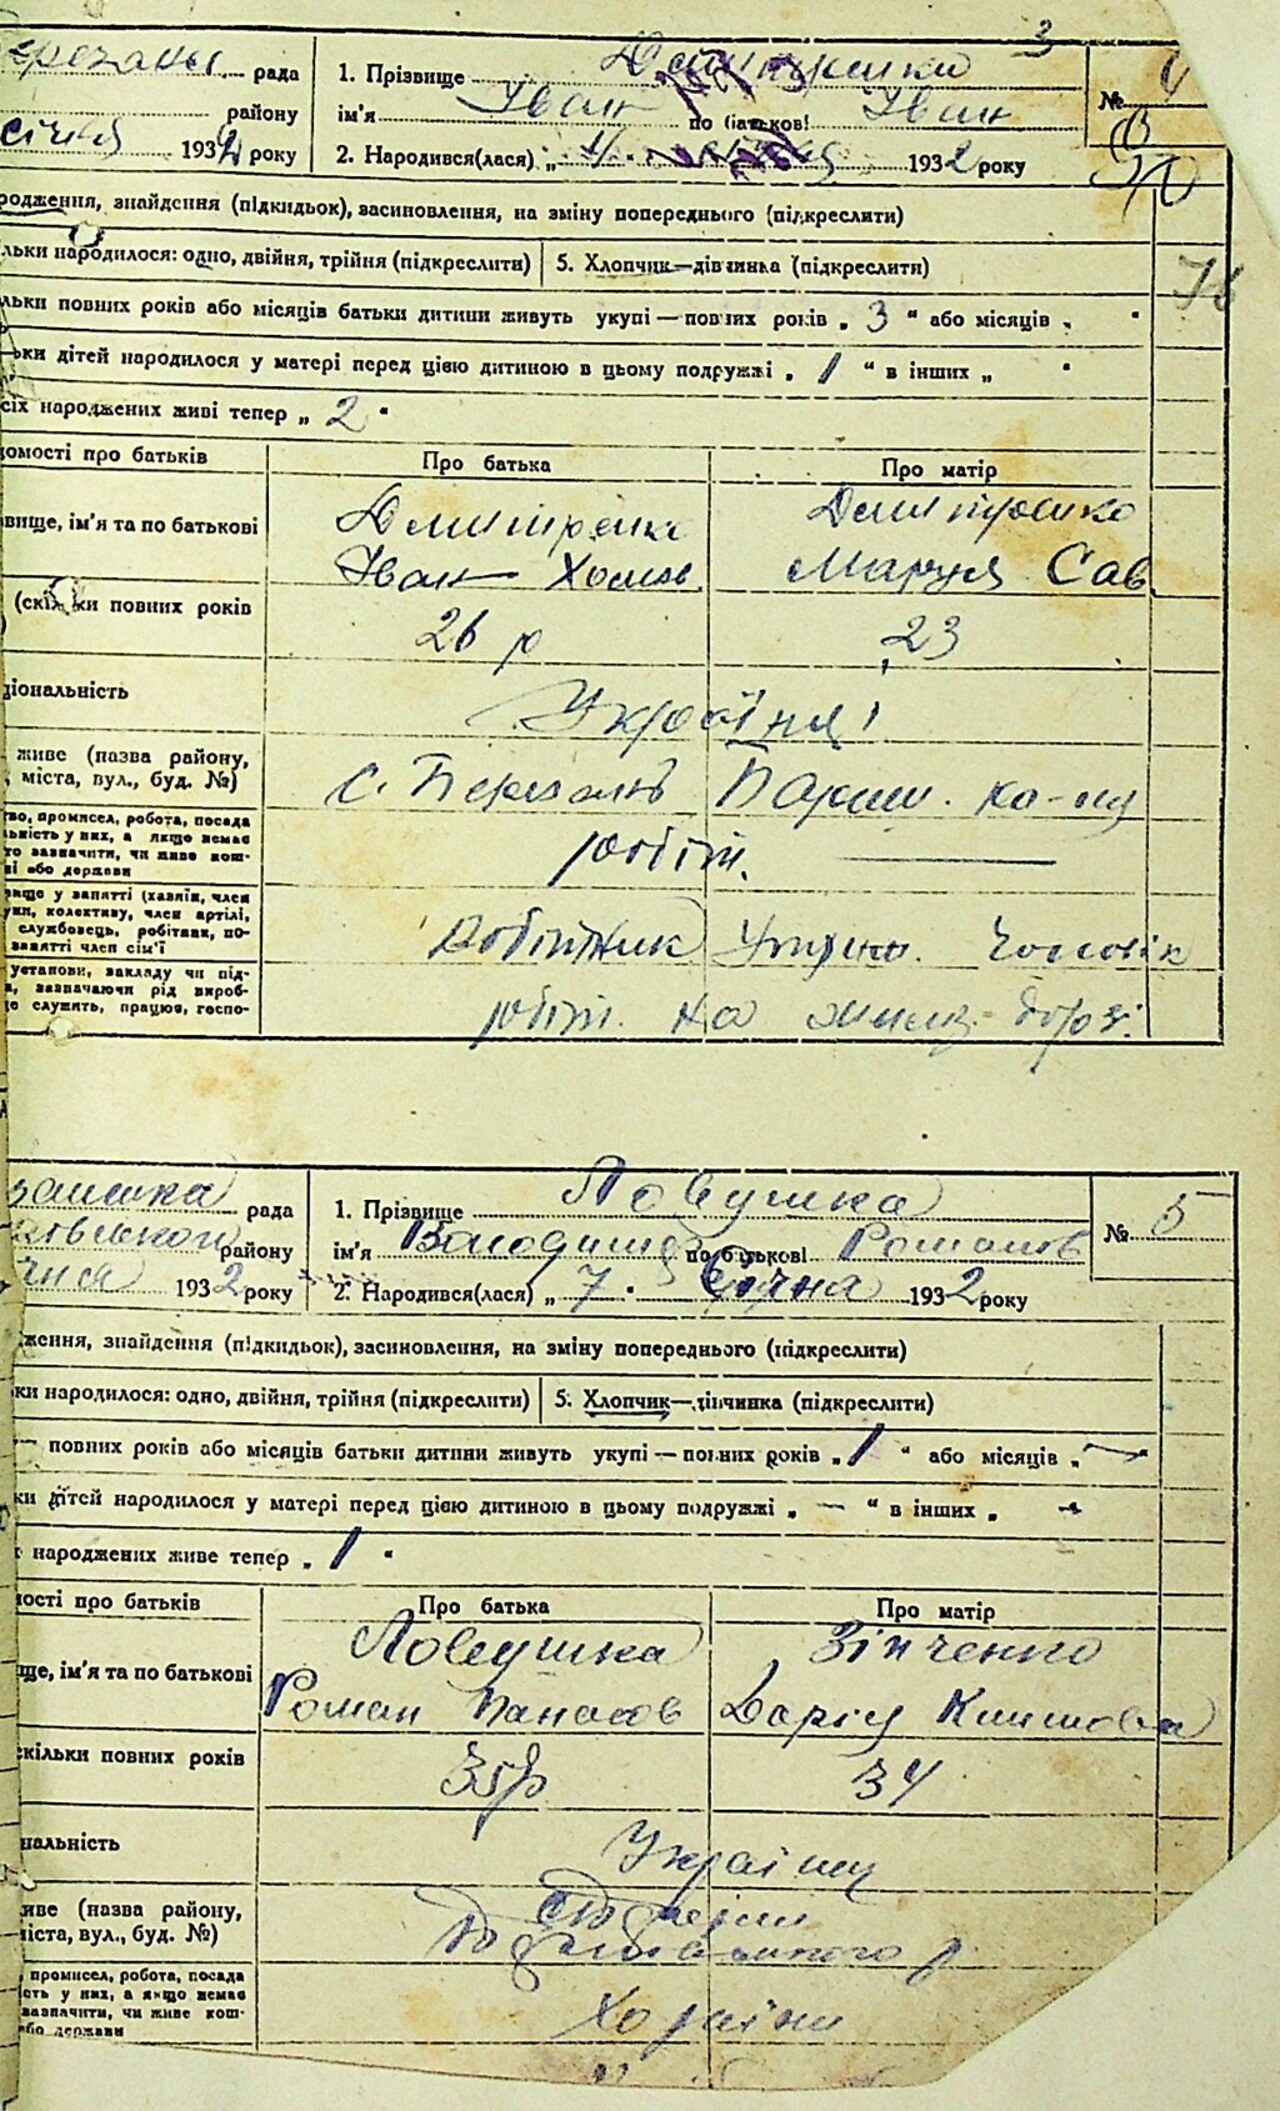 3
рада
1. Прізвище Дмитренко
№ 4
району
ім'я Іван по батькові Іван
січня 1932 року
2. Народився(лася) „ 4 " січня 1932 року
родження, знайдення (підкидьок), засиновлення, на зміну попереднього (підкреслити)
льки народилося: одно, двійня, трійня (підкреслити) 5. Хлопчик—дівчинка (підкреслити)
льки повних років або місяців батьки дитини живуть укупі — повних років „ 3 " або місяців „ "
ьки дітей народилося у матері перед цією дитиною в цьому подружжі „ 1 " в інших „ "
сіх народжених живі тепер „ 2 "
домості про батьків Про батька Про матір
вище, ім'я та по батькові Дмитренко Дмитренко
Іван Хомов. Маруся Сав
(скільки повних років 26 р 23
ціональність Українці
живе (назва району,
, міста, вул., буд. №) с. Березань Бариш. ко-ну
во, промисел, робота, посада
льність у них, а якщо немає
то зазначити, чи живе кош-
ні або держави
робітн. —
вище у занятті (хазяїн, член
уми, колективу, член артілі,
службовець, робітник, по-
занятті член сім'ї
Робітник Утрим. Чоловік
установи, закладу чи під-
а, зазначаючи рід вироб-
де служить, працює, госпо-
робітн. на
рада
1. Прізвище Ловушка
№ 5
району
ім'я Володимир по батькові Романов
1932 року
2. Народився(лася) „ 7 " Січня 1932 року
ження, знайдення (підкидьок), засиновлення, на зміну попереднього (підкреслити)
ки народилося: одно, двійня, трійня (підкреслити) 5. Хлопчик—дівчинка (підкреслити)
— повних років або місяців батьки дитини живуть укупі — повних років „ 1 " або місяців „ — "
ки дітей народилося у матері перед цією дитиною в цьому подружжі „ — " в інших „ —
народжених живе тепер „ 1 "
мості про батьків Про батька Про матір
ще, ім'я та по батькові Ловушка Зінченко
Роман Панасов Дарія Климовна
скільки повних років 35 р 34
нальність Українці
иве (назва району,
міста, вул., буд. №)
, промисел, робота, посада
сть у них, а якщо немає
зазначити, чи живе кош-
або держави